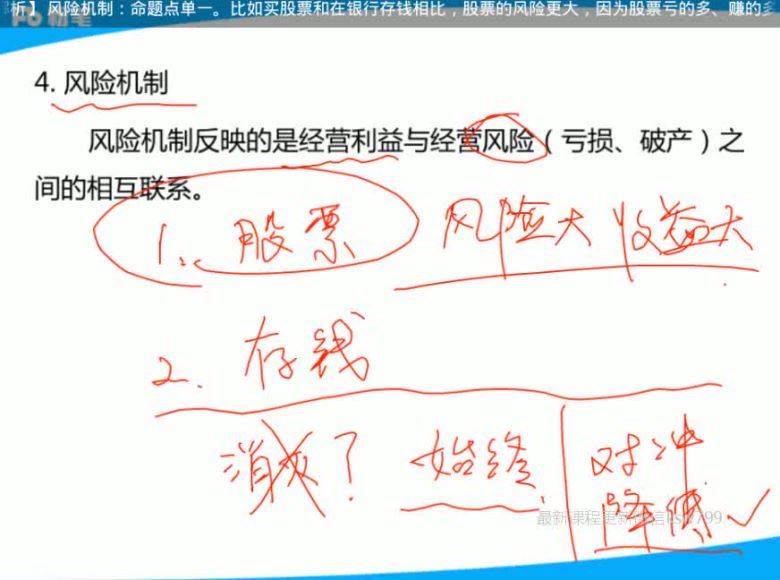 析】风险机制：命题点单一。比如买股票和在银行存钱相比，股票的风险更大，因为股票亏的多、赚的多
粉笔
4. 风险机制
风险机制反映的是经营利益与经营风险（亏损、破产）之
间的相互联系。
1、股票 风险大 收益大
2. 存钱
消灭？ 始终 对冲
降低 ✓
最新课程更新微信